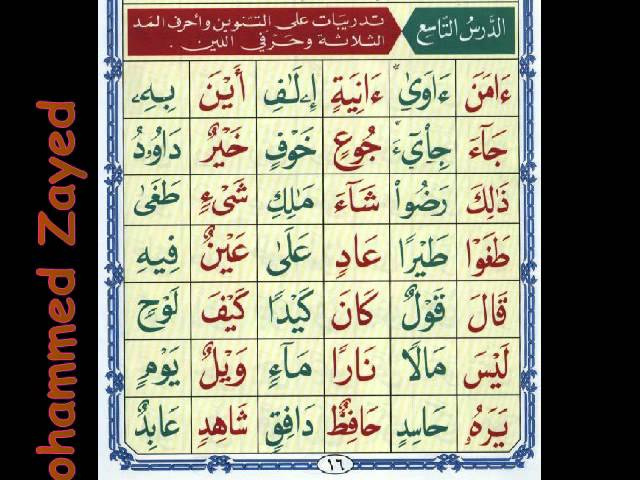 الدَّرْسُ التَّاسِعُ
تدريبات على التنوين وأحرف المد
الثلاثة وحرفي اللين .
ءَامَنَ ءَاوَىٰ ءَانِيَةٍ إِۦلَٰفِ أَيْنَ بِهِۦ
جَآءَ جِاْىٓءَ جُوعٍ خَوْفٍ خَيْرٌ دَاوُۥدُ
ذَٰلِكَ رَضُواْ شَآءَ مَٰلِكِ شَىْءٍ طَغَىٰ
طَغَوْا طَيْرًا عَادٍ عَلَىٰ عَيْنٌ فِيهِ
قَالَ قَوْلٌ كَانَ كَيْدًا كَيْفَ لَوْحٍ
لَيْسَ مَالًا نَارًا مَآءٍ وَيْلٌ يَوْمٍ
يَرَهُۥ حَاسِدٍ حَافِظٌ دَافِقٍ شَاهِدٍ عَابِدٌ
١٦
ohammed Zayed